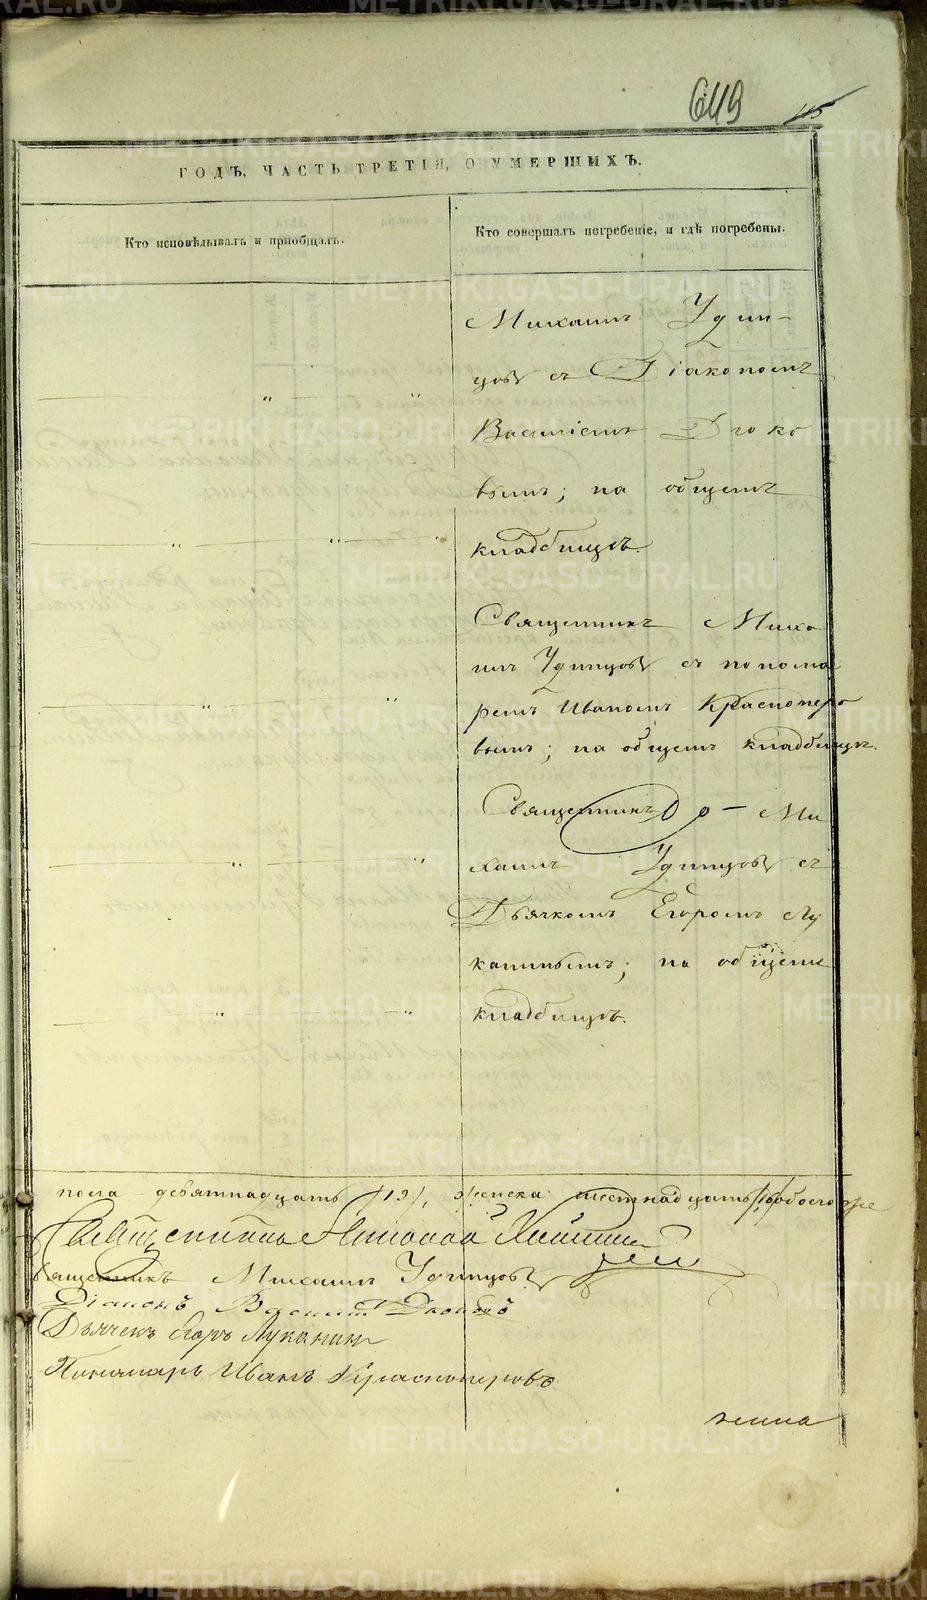 649
115
ГОДЪ, ЧАСТЬ ТРЕТІЯ, О УМЕРШИХЪ.
Кто исповѣдывалъ и пріобщалъ.
Кто совершалъ погребеніе, и гдѣ погребены.
Михаилъ Удин-
цовъ съ Діакономъ
Василіемъ Дюко
вымъ; на общемъ
кладбищѣ.
Священникъ Миха
илъ Удинцовъ съ понома
ремъ Иваномъ Красноперо
вымъ; на общемъ кладбищѣ.
Священникъ Ми
хаилъ Удинцовъ съ
Дьячкомъ Егоромъ Лу
канинымъ; на общемъ
кладбищѣ.
пола девятнадцать /19/, женска шестнадцать /16/ обоего же
Священникъ Николай
Священникъ Михаилъ Удинцовъ
Діаконъ Василій
Дьячекъ Егоръ Луканинъ
Пономарь Иванъ Красноперовъ
METRIKI.GASO-URAL.RU